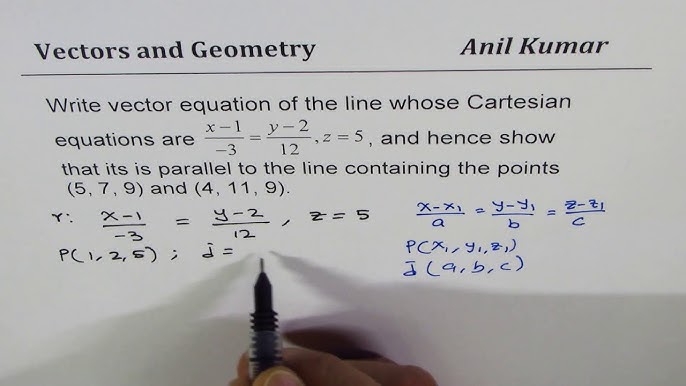 Vectors and Geometry
Anil Kumar
Write vector equation of the line whose Cartesian
equations are (x−1)/(−3) = (y−2)/12, z = 5, and hence show
that its is parallel to the line containing the points
(5, 7, 9) and (4, 11, 9).
r: (x−1)/(−3) = (y−2)/12, z = 5
P(1, 2, 5) ; d =
(x−x₁)/a = (y−y₁)/b = (z−z₁)/c
P(x₁, y₁, z₁)
d (a, b, c)